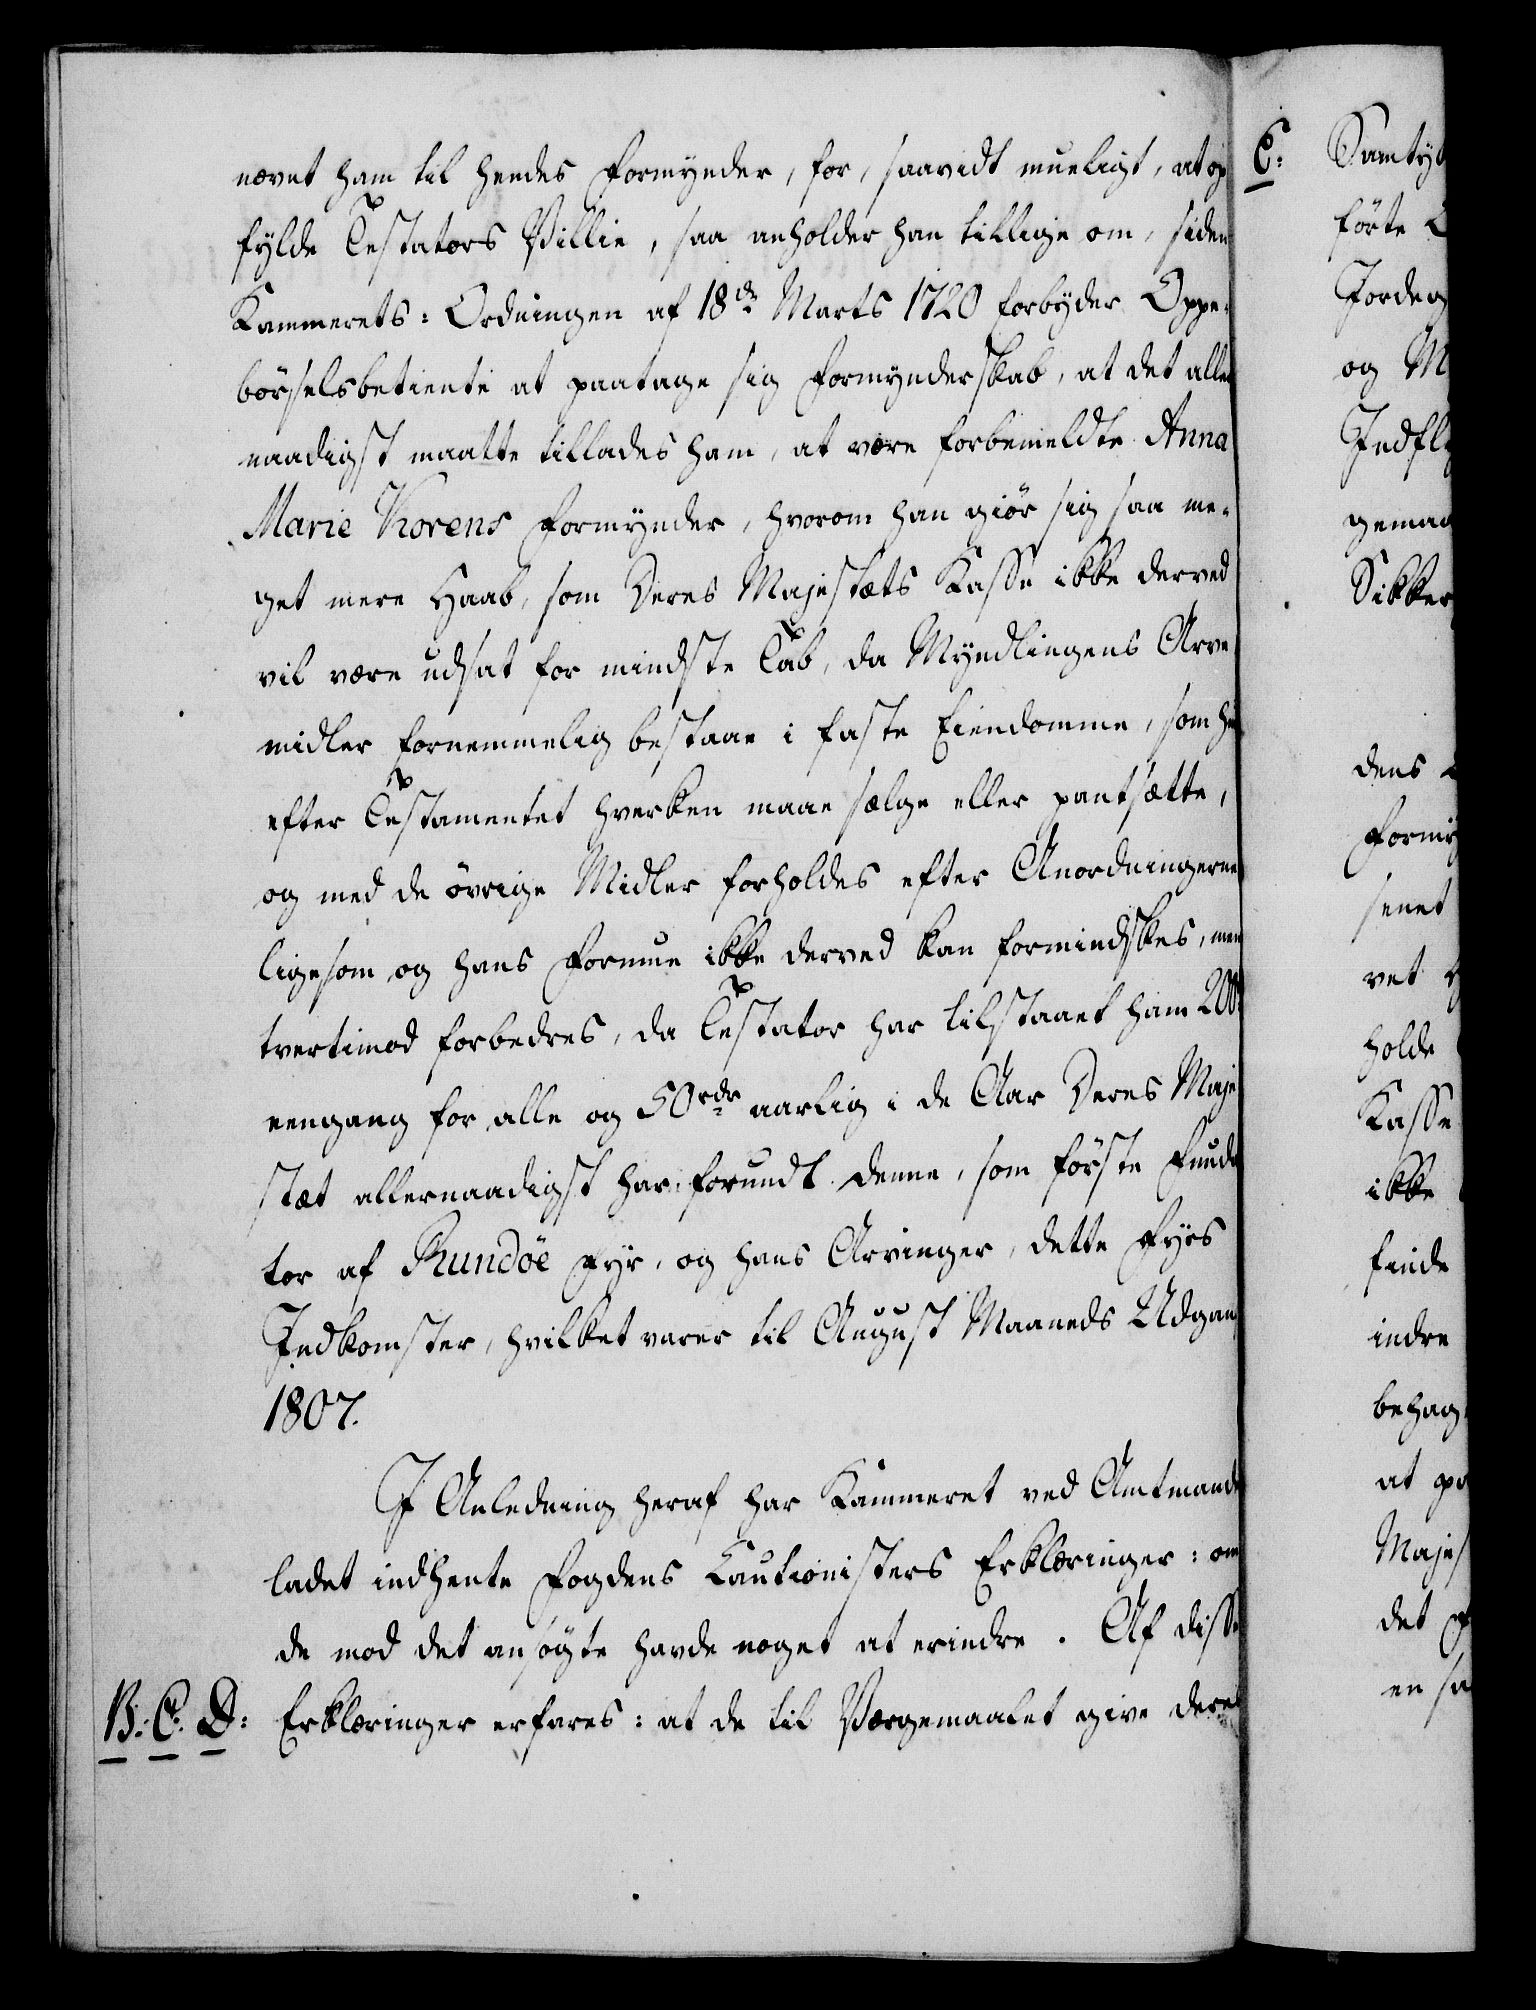 nævnt ham til hendes Formynder, for, saavidt mueligt, at op
fylde Testators Villie, saa anholder han tillige om, siden
Kammerets-Ordningen af 18de Marts 1720 forbyder Oppe-
börselsbetiente at paatage sig Formynderskab, at det aller
naadigst maatte tillades ham, at være forbemeldte Anna
Marie Korens Formynder, hvorom han giör sig saa me-
get mere Haab, som Deres Majestæts Kasse ikke derved
vil være udsat for mindste Tab, da Myndlingens Arve
midler fornemmelig bestaae i faste Eiendomme, som hun
efter Testamentet hverken maae sælge eller pantsætte,
og med de övrige Midler forholdes efter Anordningerne
ligesom og hans Formue ikke derved kan formindskes, men
tvertimod forbedres, da Testator har tilstaaet ham 200
eengang for alle og 50rdr aarlig i de Aar Deres Maje
stæt allernaadigst har forundt denne, som förste Funda
tor af Rundöe Fyr, og hans Arvinger, dette Fyrs
Indkomster, hvilket varer til August Maaneds Udgang
1807.
I Anledning heraf har Kammeret ved Amtmanden
ladet indhente Fogdens Cautionisters Erklæringer: om
de mod det ansögte havde noget at erindre. Af disse
B. C. D: Erklæringer erfares: at de til Værgemaalet give deres
E: Samty
förte
Jordeg
og M
Indfly
gemaa
Sikker
dens
Formy
senet
vet
holde
Kasse
ikke
finde
indre
behag
at pa
Majes
det
en sa